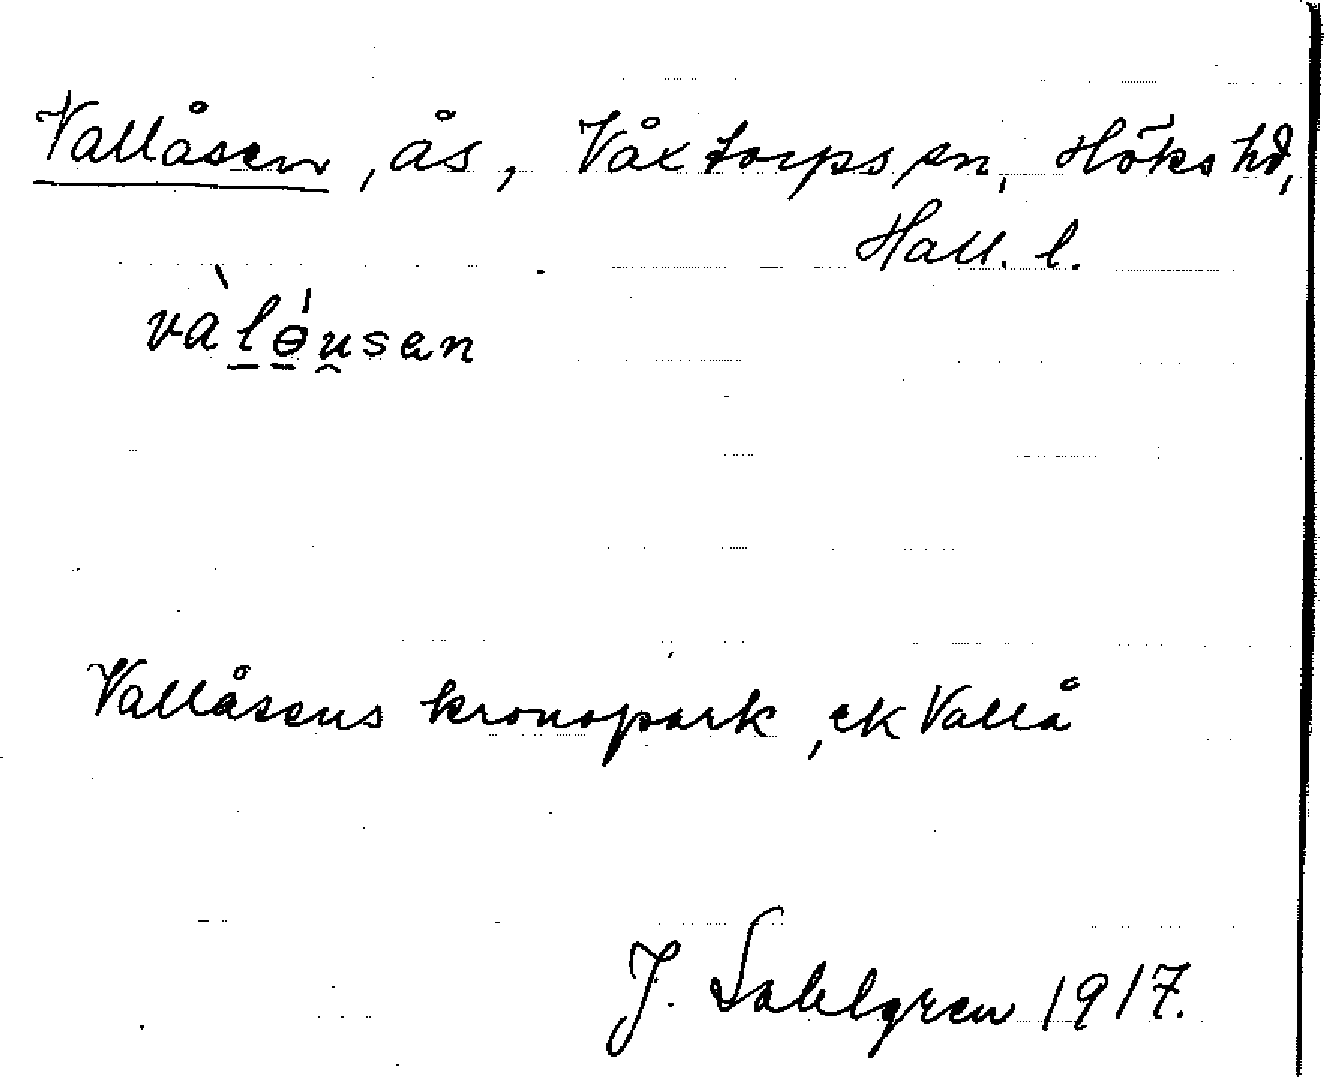 Vallåsen, ås, Våxtorps sn, Höks hd,
Hall. l.
vàlɵ́u̯sen
Vallåsens kronopark, ek Vallå
J. Sahlgren 1917.